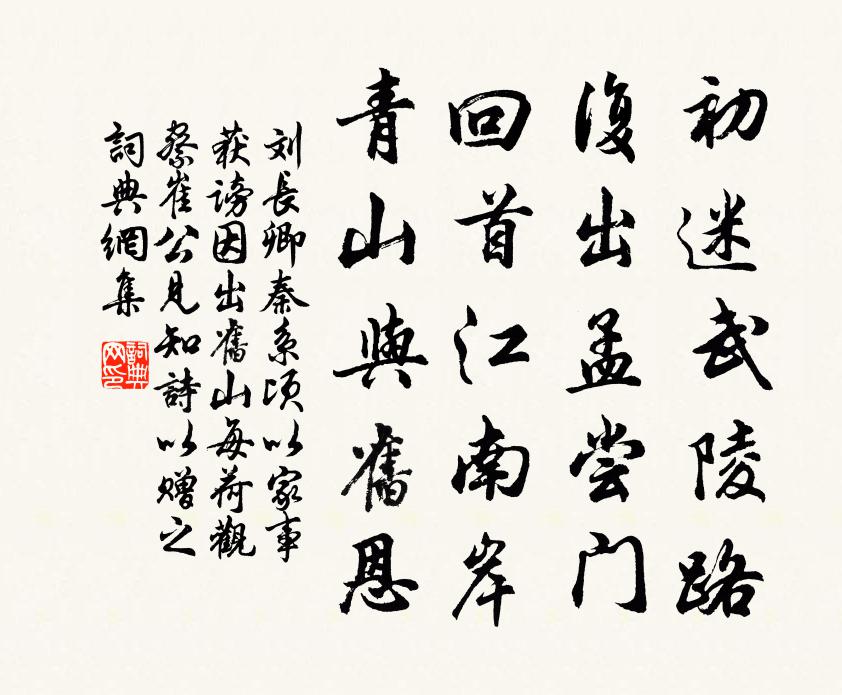 初迷武陵路
復出孟尝门
回首江南岸
青山與舊恩
刘長卿秦系頃以家事
获謗因出舊山每荷觀
察崔公見知詩以赠之
詞典網集
詞典
网印